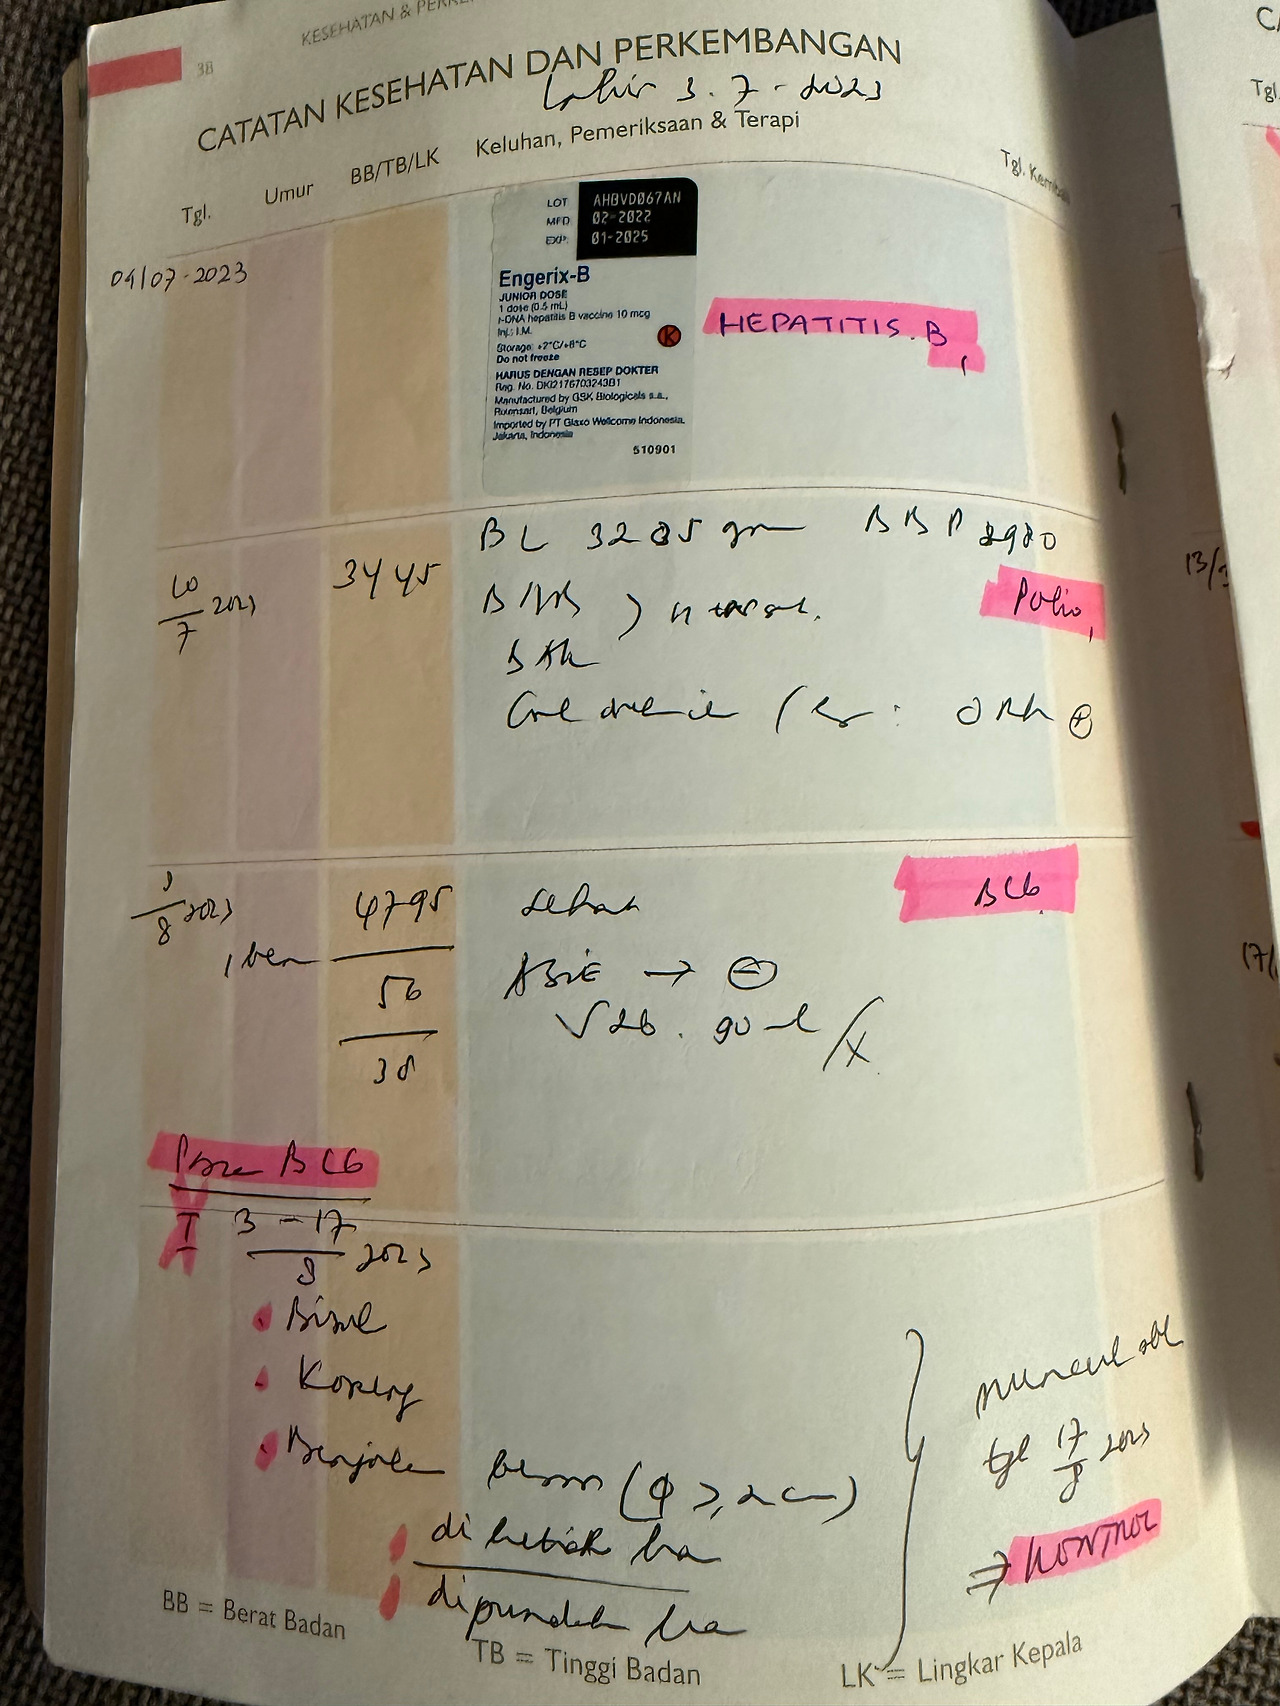 38
CATATAN KESEHATAN DAN PERKEMBANGAN
Lahir 3.7-2023
Tgl. Umur BB/TB/LK Keluhan, Pemeriksaan & Terapi
04/07-2023
LOT AHBVD067AN
MFD 02-2022
EXP: 01-2025
Engerix-B
JUNIOR DOSE
1 dose (0.5 mL)
r-DNA hepatitis B vaccine 10 mcg
Inj.: I.M.
K
Storage: +2°C/+8°C
Do not freeze
HARUS DENGAN RESEP DOKTER
Reg. No. DKI2176703243B1
Manufactured by GSK Biologicals s.a.,
Rixensart, Belgium
Imported by PT Glaxo Wellcome Indonesia,
Jakarta, Indonesia
510901
HEPATITIS.B 1
10/7 2023
3445
BL gm BBP
Polio 1
BAK
3/8 2023
1 bln
4795
56
38
sehat
BCG
ASIE → ⊖
BCG
I 3-17/8 2023
Bisul
Koreng
Benjolan besar (Φ ≥ 2 cm)
di ketiak ka
dipundak ka
muncul sbl
tgl 17/8 2023
⇒ KONTROL
BB = Berat Badan
TB = Tinggi Badan
LK = Lingkar Kepala